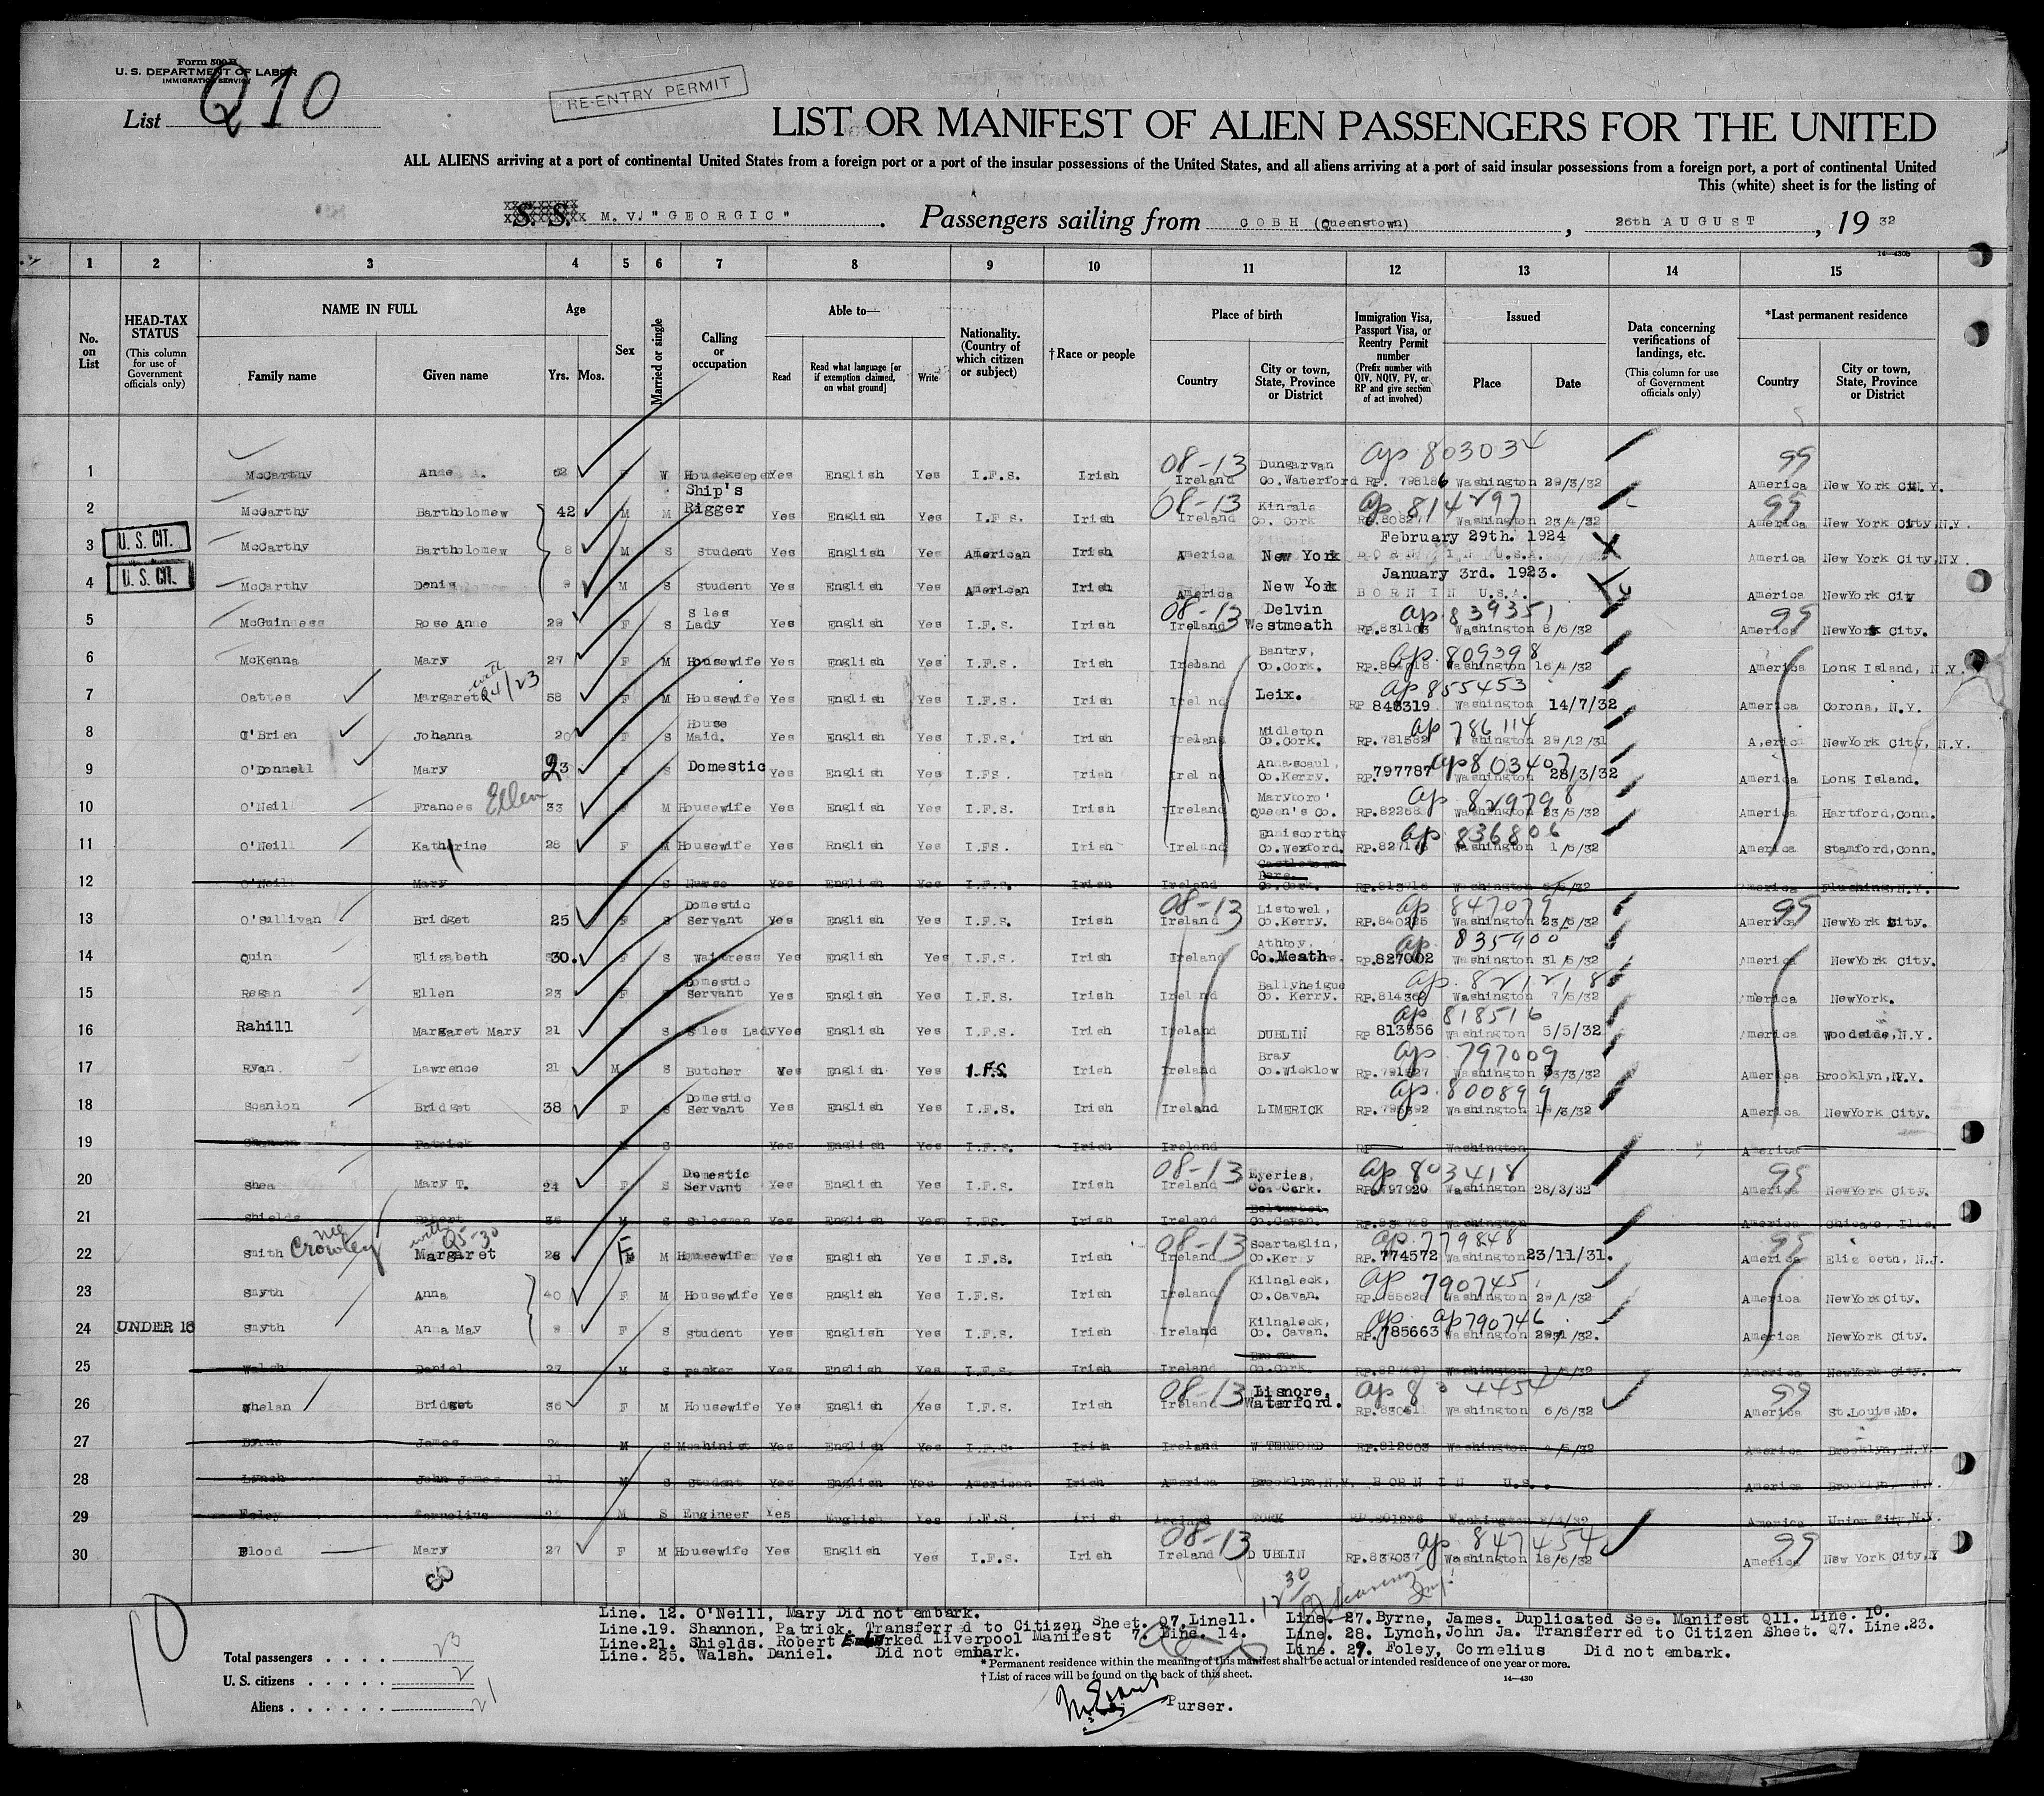 Form 500 B
U. S. DEPARTMENT OF LABOR
IMMIGRATION SERVICE
List Q10
RE-ENTRY PERMIT
LIST OR MANIFEST OF ALIEN PASSENGERS FOR THE UNITED
ALL ALIENS arriving at a port of continental United States from a foreign port or a port of the insular possessions of the United States, and all aliens arriving at a port of said insular possessions from a foreign port, a port of continental United
This (white) sheet is for the listing of
S. S. M. V. "GEORGIC". Passengers sailing from COBH (Queenstown), 26th AUGUST, 19 32
14—430b
1 2 3 4 5 6 7 8 9 10 11 12 13 14 15
No. on List
HEAD-TAX STATUS (This column for use of Government officials only)
NAME IN FULL Family name Given name
Age Yrs. Mos.
Sex
Married or single
Calling or occupation
Able to— Read Read what language [or if exemption claimed, on what ground] Write
Nationality. (Country of which citizen or subject)
†Race or people
Place of birth Country City or town, State, Province or District
Immigration Visa, Passport Visa, or Reentry Permit number (Prefix number with QIV, NQIV, PV, or RP and give section of act involved)
Issued Place Date
Data concerning verifications of landings, etc. (This column for use of Government officials only)
*Last permanent residence Country City or town, State, Province or District
1 McCarthy F W Housekeeper Yes English Yes I.F.S. Irish 08-13 Ireland Dungarvan Co. Waterford ap 803034 RP. Washington 29/3/32 99 America New York
2 McCarthy Bartholomew 42 M M Ship's Rigger Yes English Yes I.F.S. Irish 08-13 Ireland Kinsale Co. Cork ap 814297 Washington 99 America New York City, N.Y.
3 U. S. CIT. McCarthy Bartholomew 8 M S Student Yes English Yes American Irish America New York February 29th. 1924 BORN IN U.S.A. America New York City, N.Y
4 U. S. CIT. McCarthy Denis 9 M S Student Yes English Yes American Irish America New York January 3rd. 1923. BORN IN U.S.A. America NewYork City
5 McGuinness Rose Anne 29 F S Sales Lady Yes English Yes I.F.S. Irish 08-13 Ireland Delvin Westmeath ap 839351 RP.831103 Washington 8/6/32 99 America NewYork City.
6 McKenna Mary 27 F M Housewife Yes English Yes I.F.S. Irish Ireland Bantry, Co.Cork. ap 809398 Washington 16/4/32 America Long Island, N.Y.
7 Oattes Margaret with 24/23 58 F M Housewife Yes English Yes I.F.S. Irish Ireland Leix. ap 855453 RP 846319 Washington 14/7/32 America Corona, N.Y.
8 O'Brien Johanna 20 F S House Maid. Yes English Yes I.F.S. Irish Ireland Midleton Co.Cork. ap 786114 Washington 29/12/31 America NewYork City, N.Y.
9 O'Donnell Mary 23 F S Domestic Yes English Yes I.F.S. Irish Ireland Annascaul, Co.Kerry. ap 803407 RP.797787 Washington 28/3/32 America Long Island.
10 O'Neill Frances Ellen 33 F M Housewife Yes English Yes I.F.S. Irish Ireland Maryboro' Queen's Co. ap 829798 Washington 23/5/32 America Hartford, Conn.
11 O'Neill Katherine 28 F M Housewife Yes English Yes I.F.S. Irish Ireland Enniscorthy Co. Wexford. ap 836806 Washington 1/6/32 America Stamford, Conn.
12 O'Neill Mary S Nurse Yes English Yes I.F.S. Irish Ireland Co.Cork. Washington America Flushing, N.Y.
13 O'Sullivan Bridget 25 F S Domestic Servant Yes English Yes I.F.S. Irish 08-13 Ireland Listowel, Co.Kerry. ap 847079 Washington 23/6/32 99 America NewYork City.
14 Quinn Elizabeth 30. F S Waitress Yes English Yes I.F.S. Irish Ireland Athboy, Co. Meath. ap 835900 RP.827002 Washington 31/5/32 America NewYork City.
15 Regan Ellen 23 F S Domestic Servant Yes English Yes I.F.S. Irish Ireland Ballyheigue Co. Kerry. ap 821218 Washington 7/5/32 America NewYork.
16 Rahill Margaret Mary 21 F S Sales Lady Yes English Yes I.F.S. Irish Ireland DUBLIN ap 818516 RP 813556 Washington 5/5/32 America Woodside, N.Y.
17 Ryan Lawrence 21 M S Butcher Yes English Yes I.F.S. Irish Ireland Bray Co.Wicklow ap 797009 Washington America Brooklyn, N.Y.
18 Scanlon Bridget 38 F S Domestic Servant Yes English Yes I.F.S. Irish Ireland LIMERICK ap 800899 Washington America NewYork City.
19 Shannon Patrick M S Yes English Yes I.F.S. Irish Ireland RP Washington America
20 Shea Mary T. 24 F S Domestic Servant Yes English Yes I.F.S. Irish 08-13 Ireland Eyeries, Co. Cork. ap 803418 RP.797920 Washington 28/3/32 99 America NewYork City.
21 Shields Robert M S Salesman Yes English Yes I.F.S. Irish Ireland Belturbet Co.Cavan. Washington America Chicago, Ills.
22 Smith nee Crowley Margaret with Q5-30 28 F M Housewife Yes English Yes I.F.S. Irish 08-13 Ireland Scartaglin, Co.Kerry ap 779848 RP.774572 Washington 23/11/31. 99 America Elizabeth, N.J.
23 Smyth Anna 40 F M Housewife Yes English Yes I.F.S. Irish Ireland Kilnaleck, Co.Cavan. ap 790745 Washington 29/1/32 America NewYork City.
24 UNDER 16 Smyth Anna May 9 F S Student Yes English Yes I.F.S. Irish Ireland Kilnaleck, Co. Cavan. ap ap 790746 RP.785663 Washington 29/1/32. America NewYork City.
25 Walsh Daniel 27 M S packer Yes English Yes I.F.S. Irish Ireland Co.Cork. Washington America NewYork City.
26 Whelan Bridget 36 F M Housewife Yes English Yes I.F.S. Irish 08-13 Ireland Lismore, Waterford. Washington 6/6/32 99 America St.Louis, Mo.
27 Byrne James M S Machinist Yes English Yes I.F.S. Irish Ireland WATERFORD Washington America Brooklyn, N.Y.
28 Lynch John James 11 M S Student Yes English Yes American Irish America Brooklyn, N.Y. BORN IN U.S. America Brooklyn, N.Y.
29 Foley Cornelius M S Engineer Yes English Yes I.F.S. Irish Ireland CORK Washington America Union City N.Y.
30 Flood Mary 27 F M Housewife Yes English Yes I.F.S. Irish 08-13 Ireland DUBLIN ap 847454 RP.837037 Washington 18/6/32 99 America New York City,
10
Line. 12. O'Neill, Mary Did not embark.
Line.19. Shannon, Patrick. Transferred to Citizen Sheet. Q7. Line11.
Line.21. Shields. Robert Embarked Liverpool Manifest 7. Line. 14.
Line. 25. Walsh. Daniel. Did not embark.
Line. 27. Byrne, James. Duplicated See. Manifest Q11. Line. 10.
Line. 28. Lynch, John Ja. Transferred to Citizen Sheet. Q7. Line.23.
Line. 29. Foley, Cornelius Did not embark.
Total passengers . . . . 23
U. S. citizens . . . . . 2
Aliens . . . . . . 21
* Permanent residence within the meaning of this manifest shall be actual or intended residence of one year or more.
† List of races will be found on the back of this sheet.
14—430
Purser.